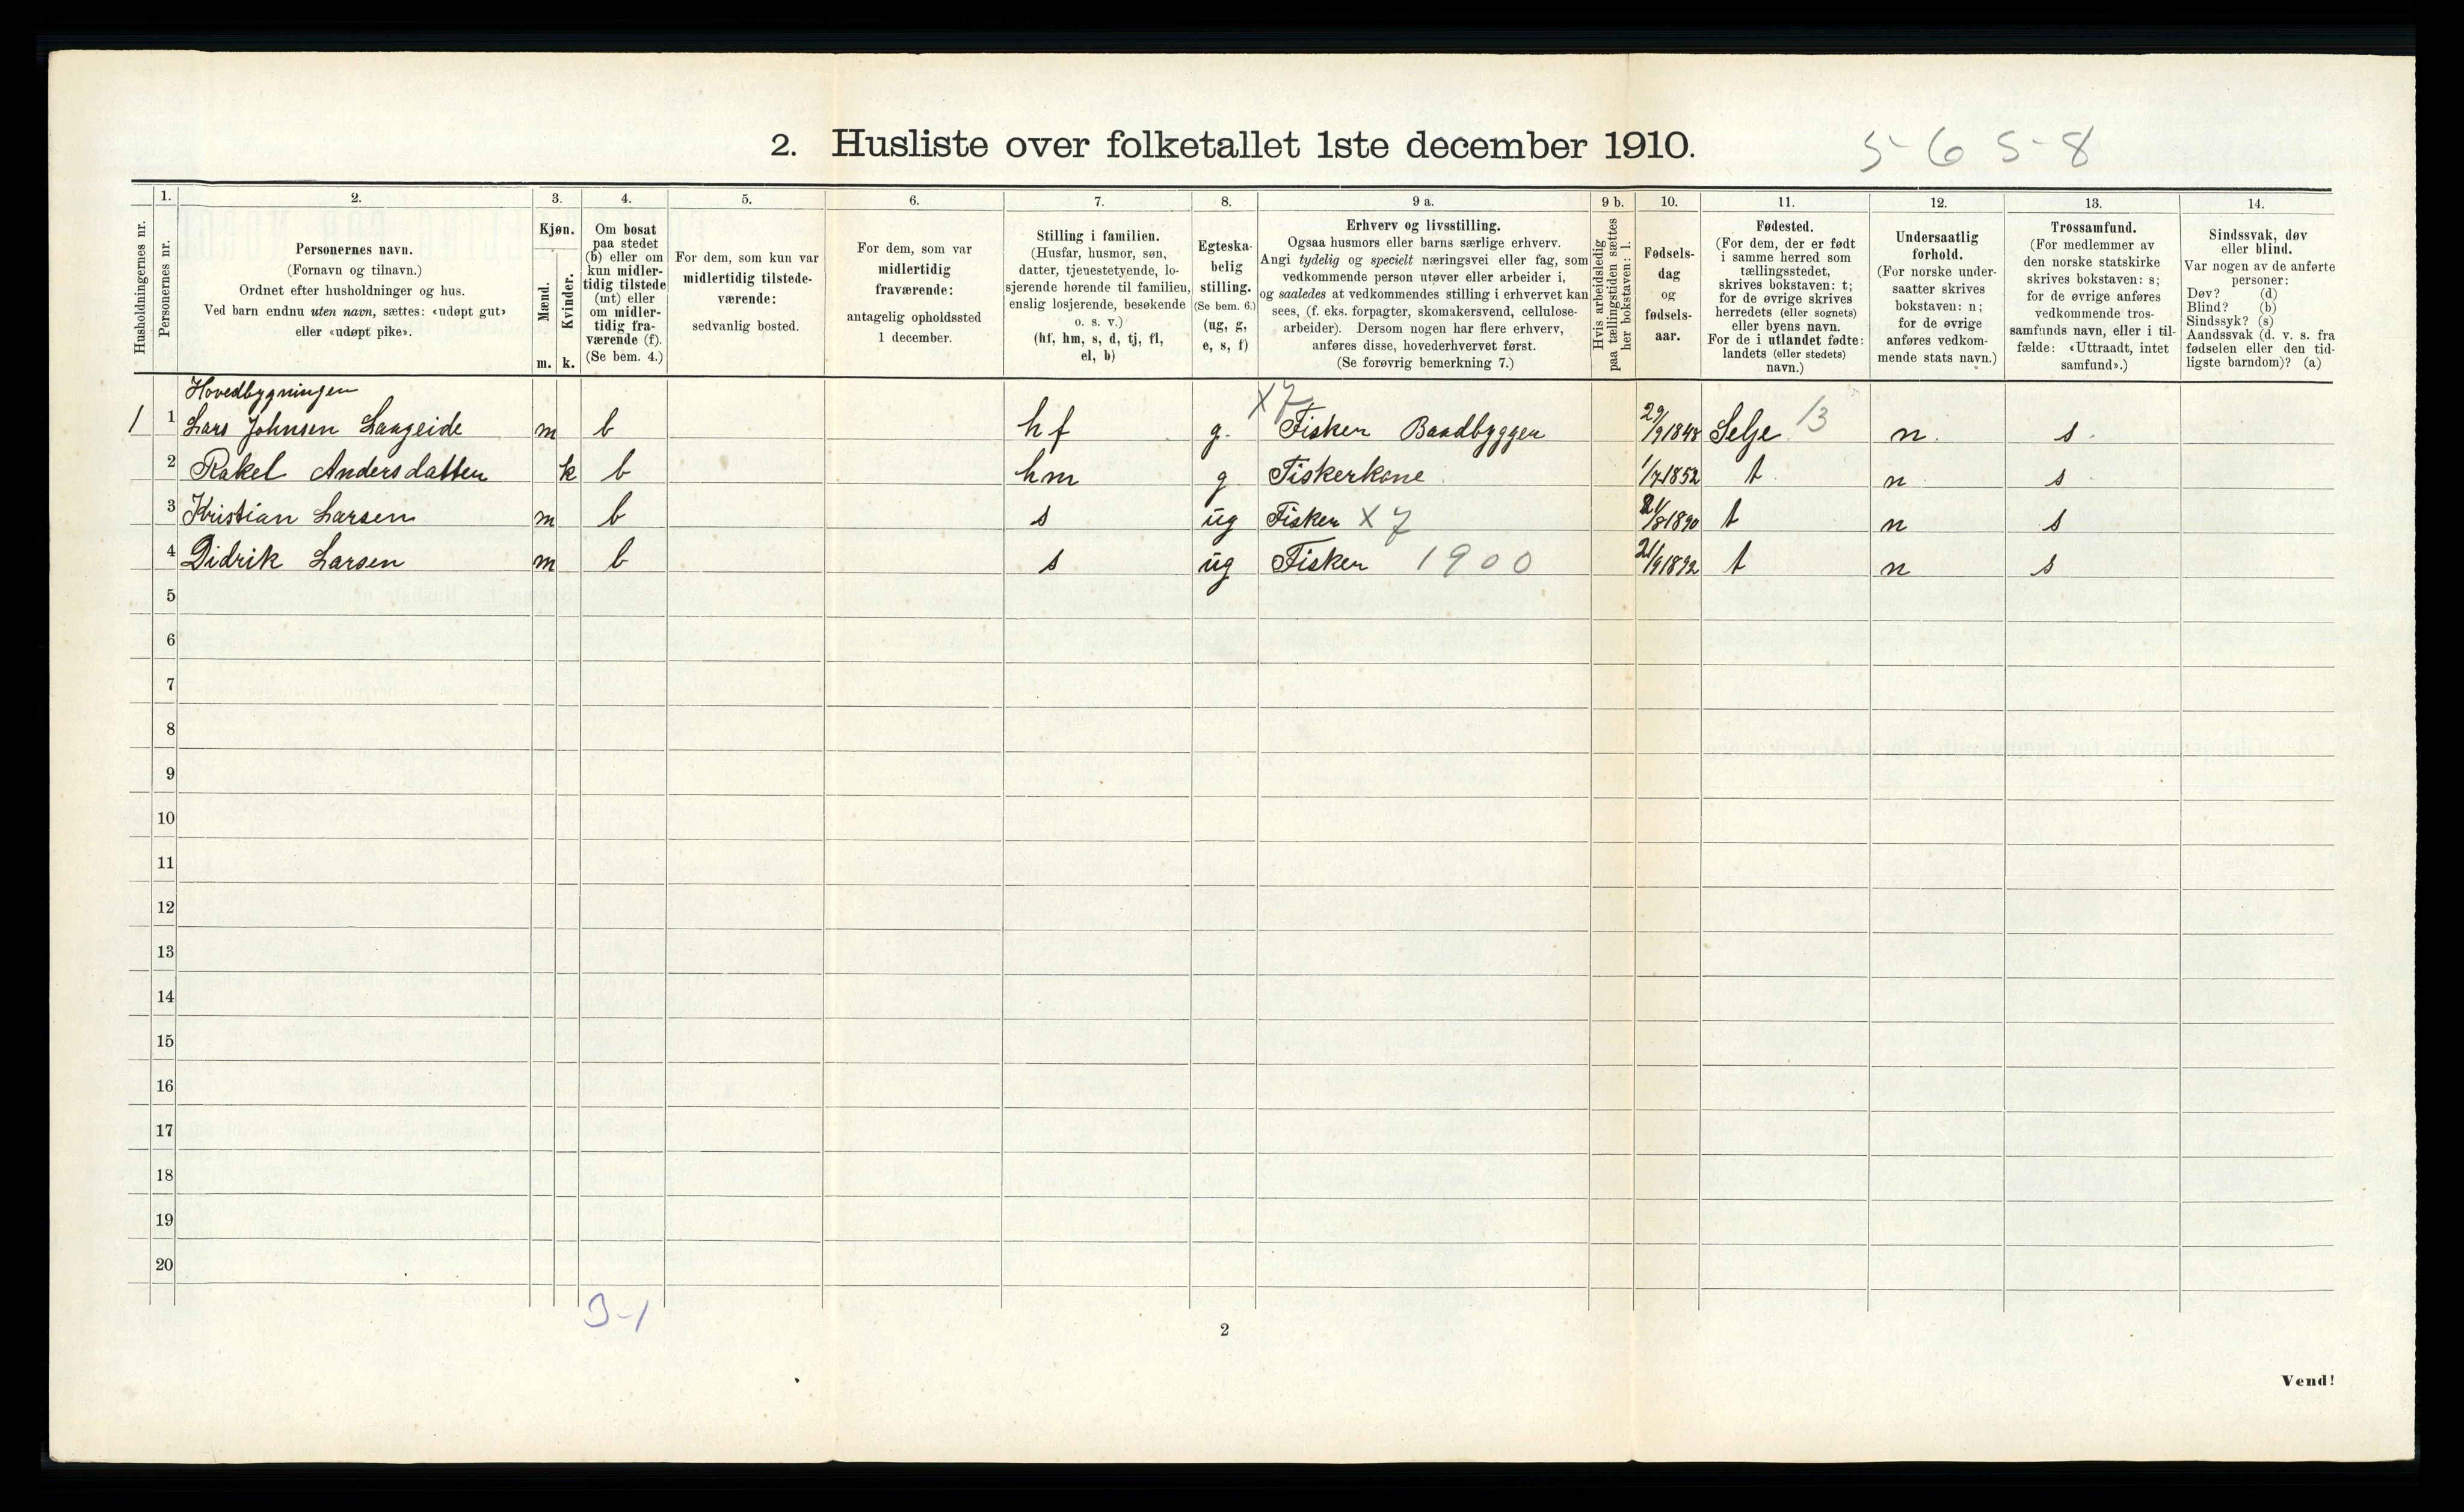 2. Husliste over folketallet 1ste december 1910.
5-6 5-8
Husholdningernes nr.
1.
Personernes nr.
2.
Personernes navn.
(Fornavn og tilnavn.)
Ordnet efter husholdninger og hus.
Ved barn endnu uten navn, sættes: «udøpt gut»
eller «udøpt pike».
3.
Kjøn.
Mænd.
Kvinder.
m. k.
4.
Om bosat
paa stedet
(b) eller om
kun midler-
tidig tilstede
(mt) eller
om midler-
tidig fra-
værende (f).
(Se bem. 4.)
5.
For dem, som kun var
midlertidig tilstede-
værende:
sedvanlig bosted.
6.
For dem, som var
midlertidig
fraværende:
antagelig opholdssted
1 december.
7.
Stilling i familien.
(Husfar, husmor, søn,
datter, tjenestetyende, lo-
sjerende hørende til familien,
enslig losjerende, besøkende
o. s. v.)
(hf, hm, s, d, tj, fl,
el, b)
8.
Egteska-
belig
stilling.
(Se bem. 6.)
(ug, g,
e, s, f)
9 a.
Erhverv og livsstilling.
Ogsaa husmors eller barns særlige erhverv.
Angi tydelig og specielt næringsvei eller fag, som
vedkommende person utøver eller arbeider i,
og saaledes at vedkommendes stilling i erhvervet kan
sees, (f. eks. forpagter, skomakersvend, cellulose-
arbeider). Dersom nogen har flere erhverv,
anføres disse, hovederhvervet først.
(Se forøvrig bemerkning 7.)
9 b.
Hvis arbeidsledig
paa tællingstiden sættes
her bokstaven: l.
10.
Fødsels-
dag
og
fødsels-
aar.
11.
Fødested.
(For dem, der er født
i samme herred som
tællingsstedet,
skrives bokstaven: t;
for de øvrige skrives
herredets (eller sognets)
eller byens navn.
For de i utlandet fødte:
landets (eller stedets)
navn.)
12.
Undersaatlig
forhold.
(For norske under-
saatter skrives
bokstaven: n;
for de øvrige
anføres vedkom-
mende stats navn.)
13.
Trossamfund.
(For medlemmer av
den norske statskirke
skrives bokstaven: s;
for de øvrige anføres
vedkommende tros-
samfunds navn, eller i til-
fælde: «Uttraadt, intet
samfund».)
14.
Sindssvak, døv
eller blind.
Var nogen av de anførte
personer:
Døv? (d)
Blind? (b)
Sindssyk? (s)
Aandssvak (d. v. s. fra
fødselen eller den tid-
ligste barndom)? (a)
Hovedbygningen
1 1 Lars Johnsen Langeide m b hf g. X7 Fisker Baadbygger 29/9 1848 Selje 13 n. s.
2 Rakel Andersdatter k b hm g Fiskerkone 1/7 1852 t n s
3 Kristian Larsen m b s ug Fisker X 7 21/8 1890 t n s
4 Didrik Larsen m b s ug Fisker 1900 21/9 1892 t n s
5
6
7
8
9
10
11
12
13
14
15
16
17
18
19
20
3-1
2
Vend!